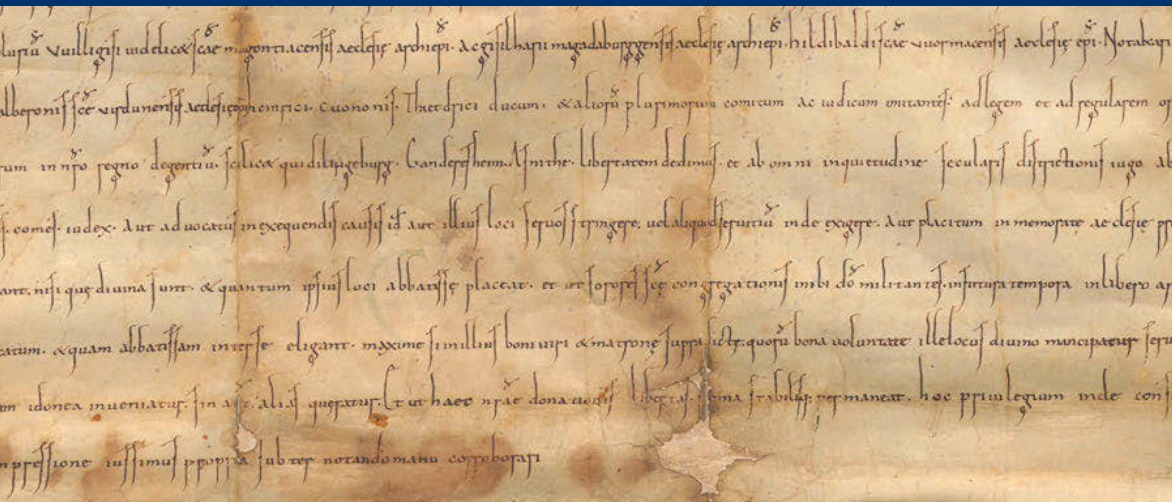 lusiũ Vuilligisi videlicet scae magontiacensis aecclesię archiepi. Ac gisilharii magadaburggensis aecclesię archiepi. hildibaldi scae vuormacensis aecclesię epi. Notakarii
alberonis scę virdunensis aecclesię heinrici. Cuononis. Thietdrici ducum. & aliorũ plurimorum comitum ac iudicum ad legem et ad regularem
rum in nr̃o regno degentiũ. scilic& quidilingeburg. Ganderesheim. Asnithe. libertatem dedimus. et ab omni inquietudine secularis districtionis iugo
comes. iudex. Aut advocatus in exequendis causis id aut illius loci servos stringere, vel aliquod servitiũ inde exigere. Aut placitum in memorate aecclesię
nisi quę divina sunt. & quantum ipsius loci abbatissę placeat. et ut sorores scę congregationis inibi dõ militantes. in futura tempora in libero
catum. & quam abbatissam inter se eligant. maxime si millius boni viri & matronę supra dictę, quorũ bona voluntate ille locus divino mancipatur
idonea inveniatur. sin aũt. alias queratur. Et ut haec nr̃ae donationis libertas. firma stabilisq; permaneat. hoc privilegium inde
pressione iussimus propria subter notando manu corroborari